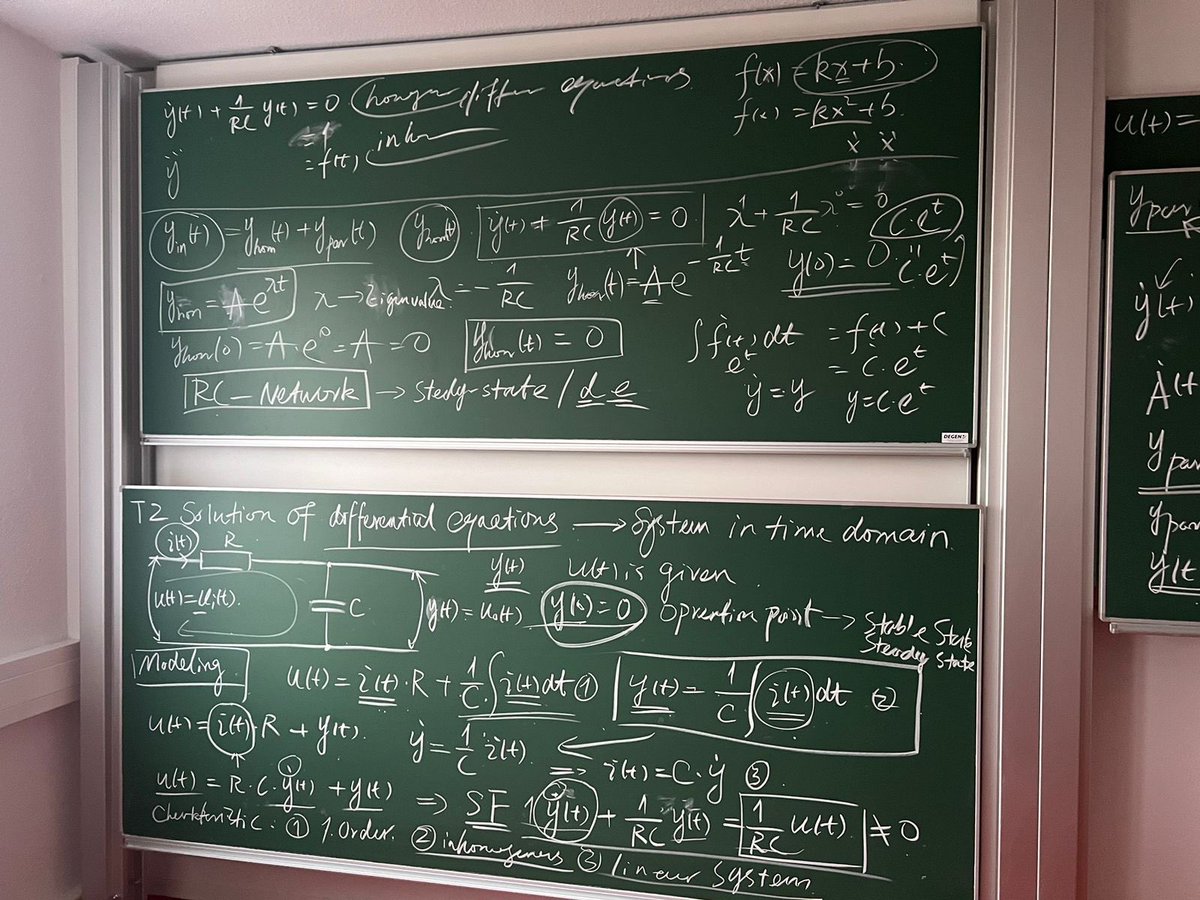 ẏ(t) + 1/RC y(t) = 0 differ equations
= f(t)
ÿ
f(x) = kx+b.
f(x) = kx²+b.
ẋ ẍ
y_in(t) = y_hom(t) + y_par(t) y_hom(t) ẏ(t) + 1/RC y(t) = 0 λ¹ + 1/RC λ⁰ = 0 C·e^t
y_hom = A e^λt λ → Eigenvalue λ = -1/RC y_hom(t) = A e^(-1/RC t) y(0) = 0
y_hom(0) = A·e⁰ = A = 0 y_hom(t) = 0
∫ f(t) dt = f(t) + C
e^t = C·e^t
RC-Network → Stedy-state / d e
ẏ = y y = C·e^t
DEGEN
T2 Solution of differential equations → System in time domain
i(t) R
u(t) = u_i(t). C y(t) = u_o(t)
y(t) u(t) is given.
y(0) = 0 Opration point → Stable State
Steady State
Modeling
u(t) = i(t)·R + 1/C ∫ i(t) dt ① y(t) = 1/C ∫ i(t) dt ②
u(t) = i(t)·R + y(t). ẏ = 1/C i(t). ⇒ i(t) = C·ẏ ③
u(t) = R·C·ẏ(t) + y(t) ⇒ SF 1 ẏ(t) + 1/RC y(t) = 1/RC u(t). ≠ 0
① 1. Order. ② inhomogeneus ③ linear System
u(t) =
y_par
ẏ(t)
Ȧ(t
y_par
y_par
y(t